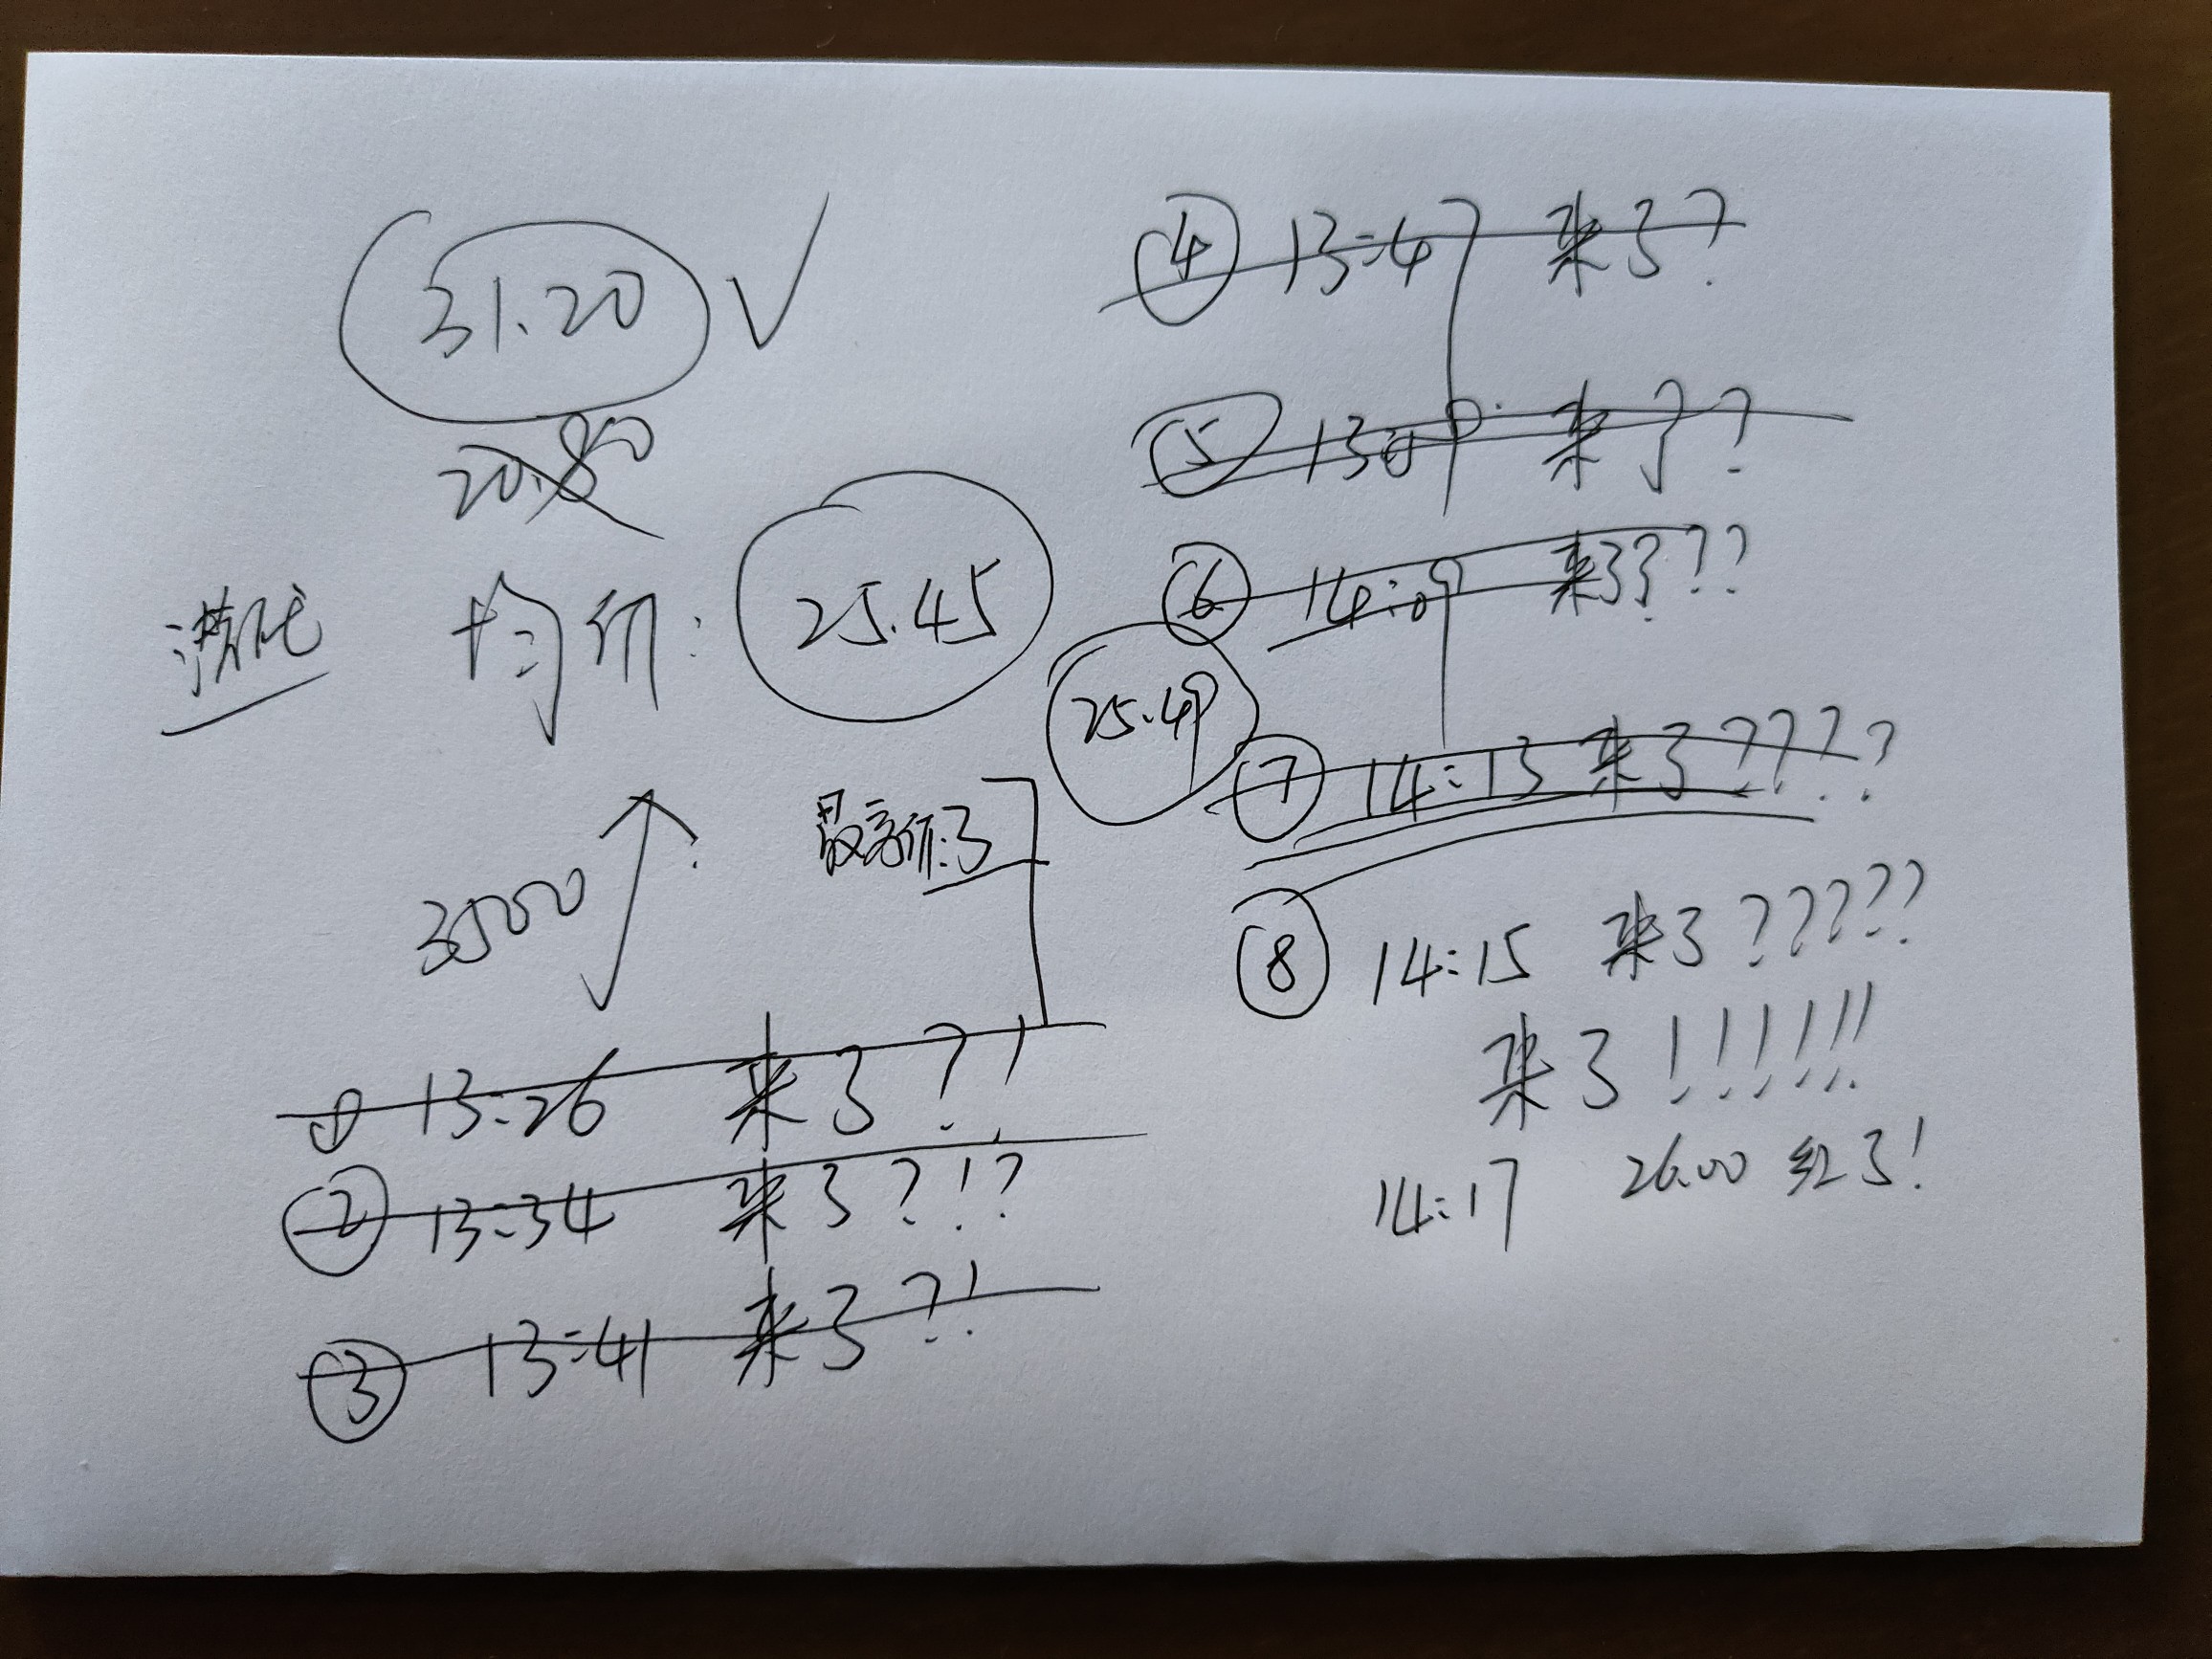 31.20 √
20.80
均价: 25.45
最高价:了
3500
① 13:26 来了?!
② 13:34 来了?!?
③ 13:41 来了?!
④ 13:47 来了?
⑤ 13:49 来了?
⑥ 14:09 来了???
25.49
⑦ 14:13 来了????
⑧ 14:15 来了?????
来了!!!!!!
14:17 26.00 红了!